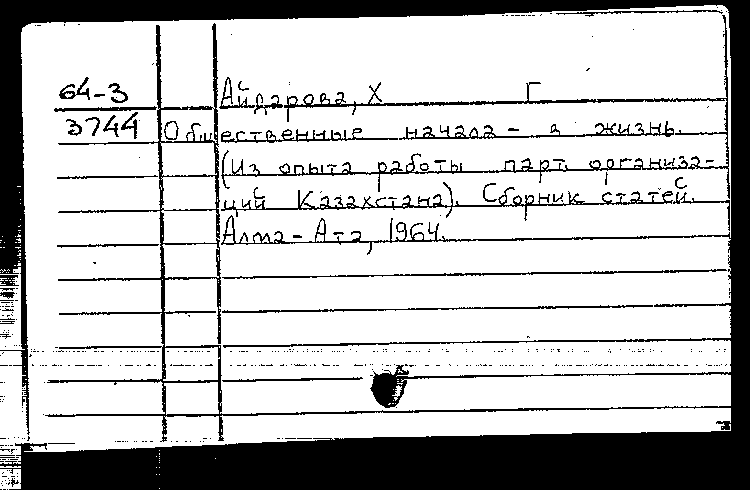 64-3 Айдарова, Х Г
3744 Общественные начала - в жизнь.
(Из опыта работы парт. организа-
ций Казахстана). Сборник статей.
Алма-Ата, 1964.